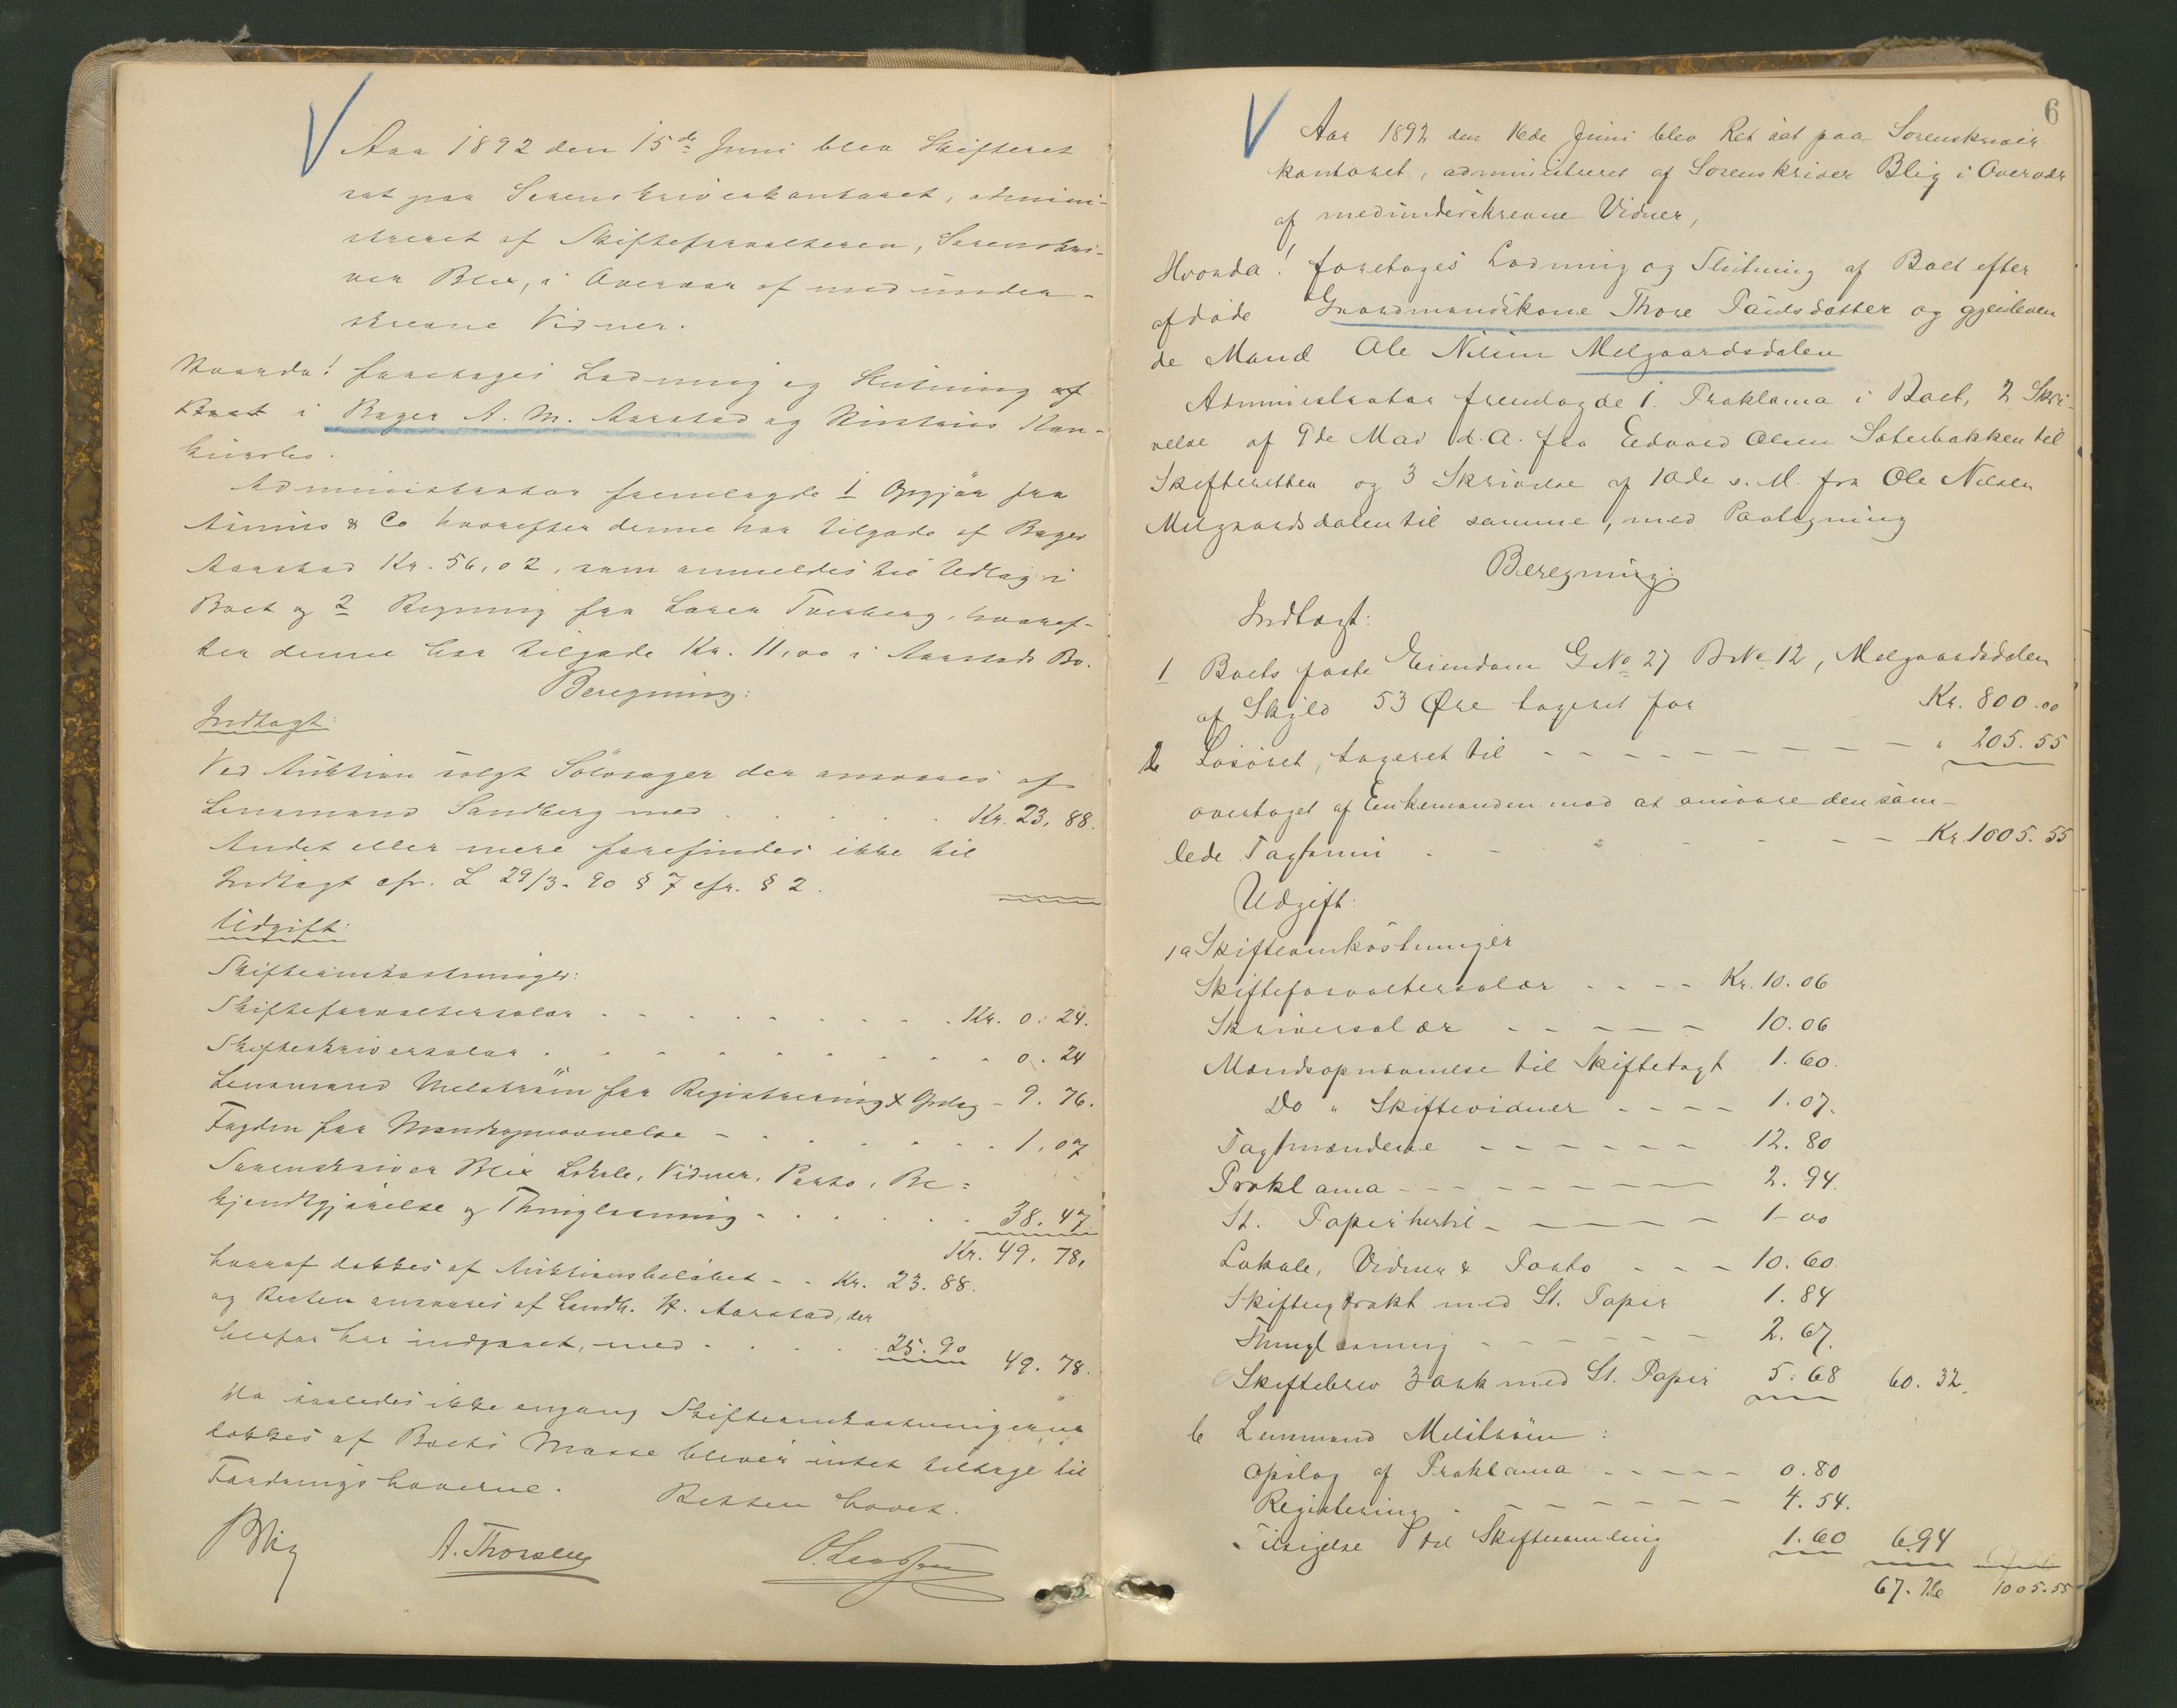 Aar 1892 den 15de Juni blev Skifteret
sat paa Sorenskriverkontoret, admini-
streret af Skifteforvalteren, Sorenskri-
ver Blix, i Overvær af medunder-
skrevne Vidner.
Hvorda! foretoges Lodning og Slutning af
Boet i Bager A. M. Aarstad og Hustrues Kon-
kursbo.
Administrator fremlagde 1 Opgjør fra
& Co hvorefter denne har tilgode af Bager
Aarstad Kr. 56,02, som anmeldes til Udlæg i
Boet og 2 Regning fra Loren Tverberg, hvoref-
ter denne har tilgode Kr. 11,00 i Aarstads Bo.
Beregning:
Indtægt:
Ved Auktion solgt Sølvsager der ansvares af
Lensmand Sandberg med Kr. 23.88.
Andet eller mere forefindes ikke til
Indtægt cfr. L 29/3-90 § 7 cfr. § 2.
Udgift:
Skifteomkostninger:
Skifteforvaltersalær Kr. 0.24.
Skifteskriversalær 0.24
Lensmand Melstrøm for Registrering & Opslag - 9.76.
Fogden for Mændsopnævnelse - 1,07
Sorenskriver Blix Lokale, Vidner, Porto, Be=
kjendtgjørelse og Thinglæsning 38.47
Kr. 49.78.
hvoraf dækkes af Auktionsbeløbet - - Kr. 23.88.
og Resten ansvares af Landh. H. Aarstad, der
herfor har indgaaet, med 25.90 49.78.
Da saaledes ikke engang Skifteomkostningerne
dækkes af Boets Masse bliver intet tilbage til
Fordringshaverne. Retten hævet.
Blix A. Thorsen
6
Aar 1892 den 16de Juni blev Ret sat paa Sorenskriver
kontoret, administreret af Sorenskriver Blix i Overvær
af medunderskrevne Vidner,
Hvorda! foretoges Lodning og Slutning af Boet efter
afdøde Gaardmandskone Thore Paulsdatter og gjenleven
de Mand Ole Nilsen Melgaardsdalen
Administrator fremlagde 1. Proklama i Boet, 2 Skri-
velse af 9de Mai d.A. fra Edvard Olsen Sæterbakken til
Skifteretten og 3 Skrivelse af 10de s. M. fra Ole Nilsen
Melgaardsdalen til samme, med Paategning
Beregning:
Indtægt:
1 Boets faste Eiendom G.No 27 B.No 12, Melgaardsdalen
af Skyld 53 Øre taxeret for Kr. 800.00
2 Løsøret, taxeret til - - - - - - - - - " 205.55
overtaget af Enkemanden mod at ansvare den sam-
lede Taxtsum - - - - Kr. 1005.55
Udgift:
1a Skifteomkostninger
Skifteforvaltersalær - - - - Kr. 10.06
Skriversalær - - - - - 10.06
Mændsopnævnelse til Skiftetaxt 1.60.
Do " Skiftevidner - - - - 1.07.
Taxtmændene - - - - - - 12.80
Proklama - - - - - - - - 2.94.
St. Papir hertil - - - - - 1-00
Lokale, Vidner & Porto - - - 10.60.
Skifteextrakt med St. Papir 1.84
Thinglæsning - - - - - - 2.67.
Skiftebrev 3 ark med St. Papir 5.68 60.32.
b Lensmand Melstrøm:
Opslag af Proklama - - - - - 0.80
Registrering - - - - - - - 4.54.
Tilsigelse til Skiftesamling 1.60 6.94
67.26 1005.55